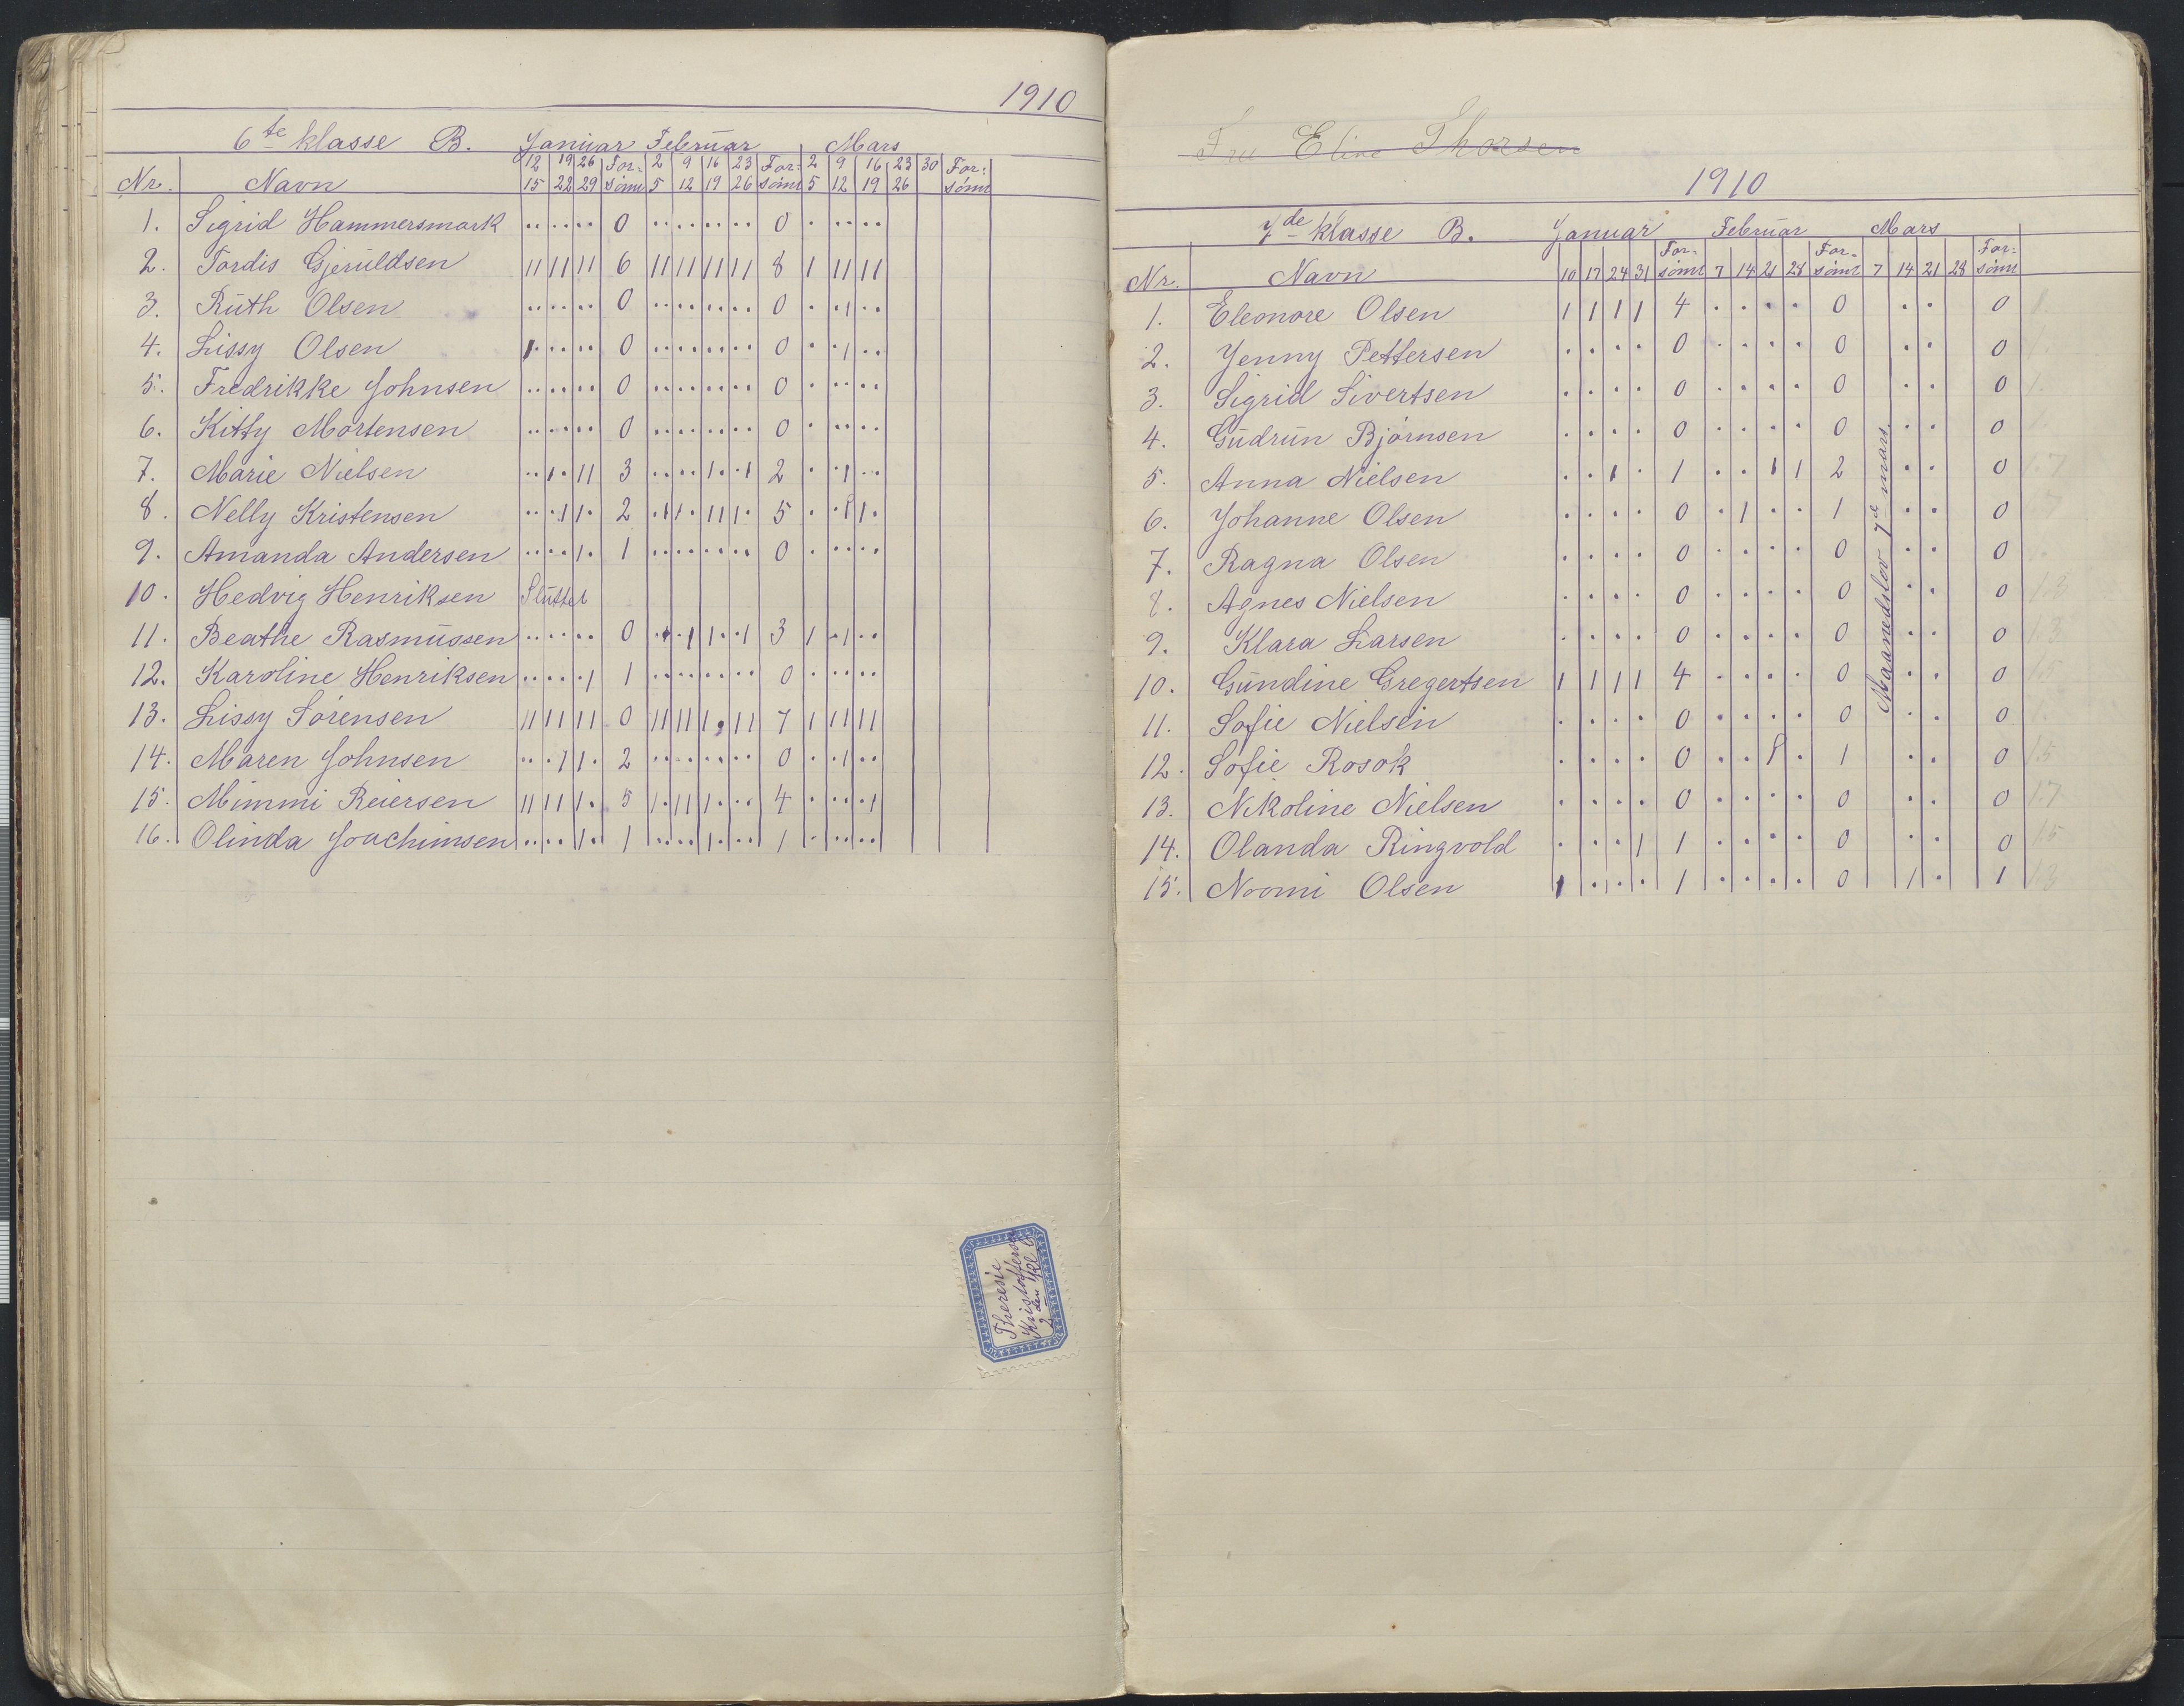 1910
6te klasse B. Januar Februar Mars
12 19 26 For- 2 9 16 23 For: 2 9 16 23 30 For:
Nr. Navn 15 22 29 sömt 5 12 19 26 sömt 5 12 19 26 sömt
1. Sigrid Hammersmark ·· ·· ·· 0 ·· ·· ·· ·· 0 · ·· ··
2. Tordis Gjeruldsen 11 11 11 6 11 11 11 11 8 1 11 11
3. Ruth Olsen ·· ·· ·· 0 ·· ·· ·· ·· 0 · ·1 ··
4. Lissy Olsen 1· ·· ·· 0 ·· ·· ·· ·· 0 · ·1 ··
5. Fredrikke Johnsen ·· ·· ·· 0 ·· ·· ·· ·· 0 · ·· ··
6. Kitty Mortensen ·· ·· ·· 0 ·· ·· ·· ·· 0 · ·· ··
7. Marie Nielsen ·· 1· 11 3 ·· ·· 1· ·1 2 · ·1 ··
8. Nelly Kristensen ·· ·1 1· 2 ·1 1· 11 1· 5 · ·1 1·
9. Amanda Andersen ·· ·· 1· 1 ·· ·· ·· ·· 0 · ·· ··
10. Hedvig Henriksen Sluttet
11. Beathe Rasmussen ·· ·· ·· 0 ·· ·1 1· ·1 3 1 ·1 ··
12. Karoline Henriksen ·· ·· ·1 1 ·· ·· ·· ·· 0 · ·· ··
13. Lissy Sörensen 11 11 11 0 11 11 1· 11 7 1 11 11
14. Maren Johnsen ·· ·1 1· 2 ·· ·· ·· ·· 0 · ·1 ··
15. Mimmi Reiersen 11 11 1· 5 1· 11 1· ·· 4 · ·· ·1
16. Olinda Joachimsen ·· ·· 1· 1 ·· ·· 1· ·· 1 · ·· ··
Theresie
Kristoffersen
2den Kl
Fru Eline Thorsen
1910
7de klasse B. Januar Februar Mars
For- For- For:
Nr. Navn 10 17 24 31 sömt 7 14 21 28 sömt 7 14 21 28 sömt
1. Eleonore Olsen 1 1 1 1 4 · · · · 0 · · 0
2. Jenny Pettersen · · · · 0 · · · · 0 · · 0
3. Sigrid Sivertsen · · · · 0 · · · · 0 · · 0
4. Gudrun Bjørnsen · · · · 0 · · · · 0 · · 0
5. Anna Nielsen · · 1 · 1 · · 1 1 2 · · 0
6. Johanne Olsen · · · · 0 · 1 · · 1 · · 0
7. Ragna Olsen · · · · 0 · · · · 0 · · 0
8. Agnes Nielsen · · · · 0 · · · · 0 · · 0
9. Klara Larsen · · · · 0 · · · · 0 · · 0
10. Gundine Gregertsen 1 1 1 1 4 · · · · 0 · · 0
11. Sofie Nielsen · · · · 0 · · · · 0 · · 0
12. Sofie Rosok · · · · 0 · · 1 · 1 · · 0
13. Nikoline Nielsen · · · · 0 · · · · 0 · · 0
14. Olanda Ringvold · · · 1 1 · · · · 0 · · 0
15. Noomi Olsen 1 · · · 1 · · · · 0 1 · 1
Maanedslov 7de mars.